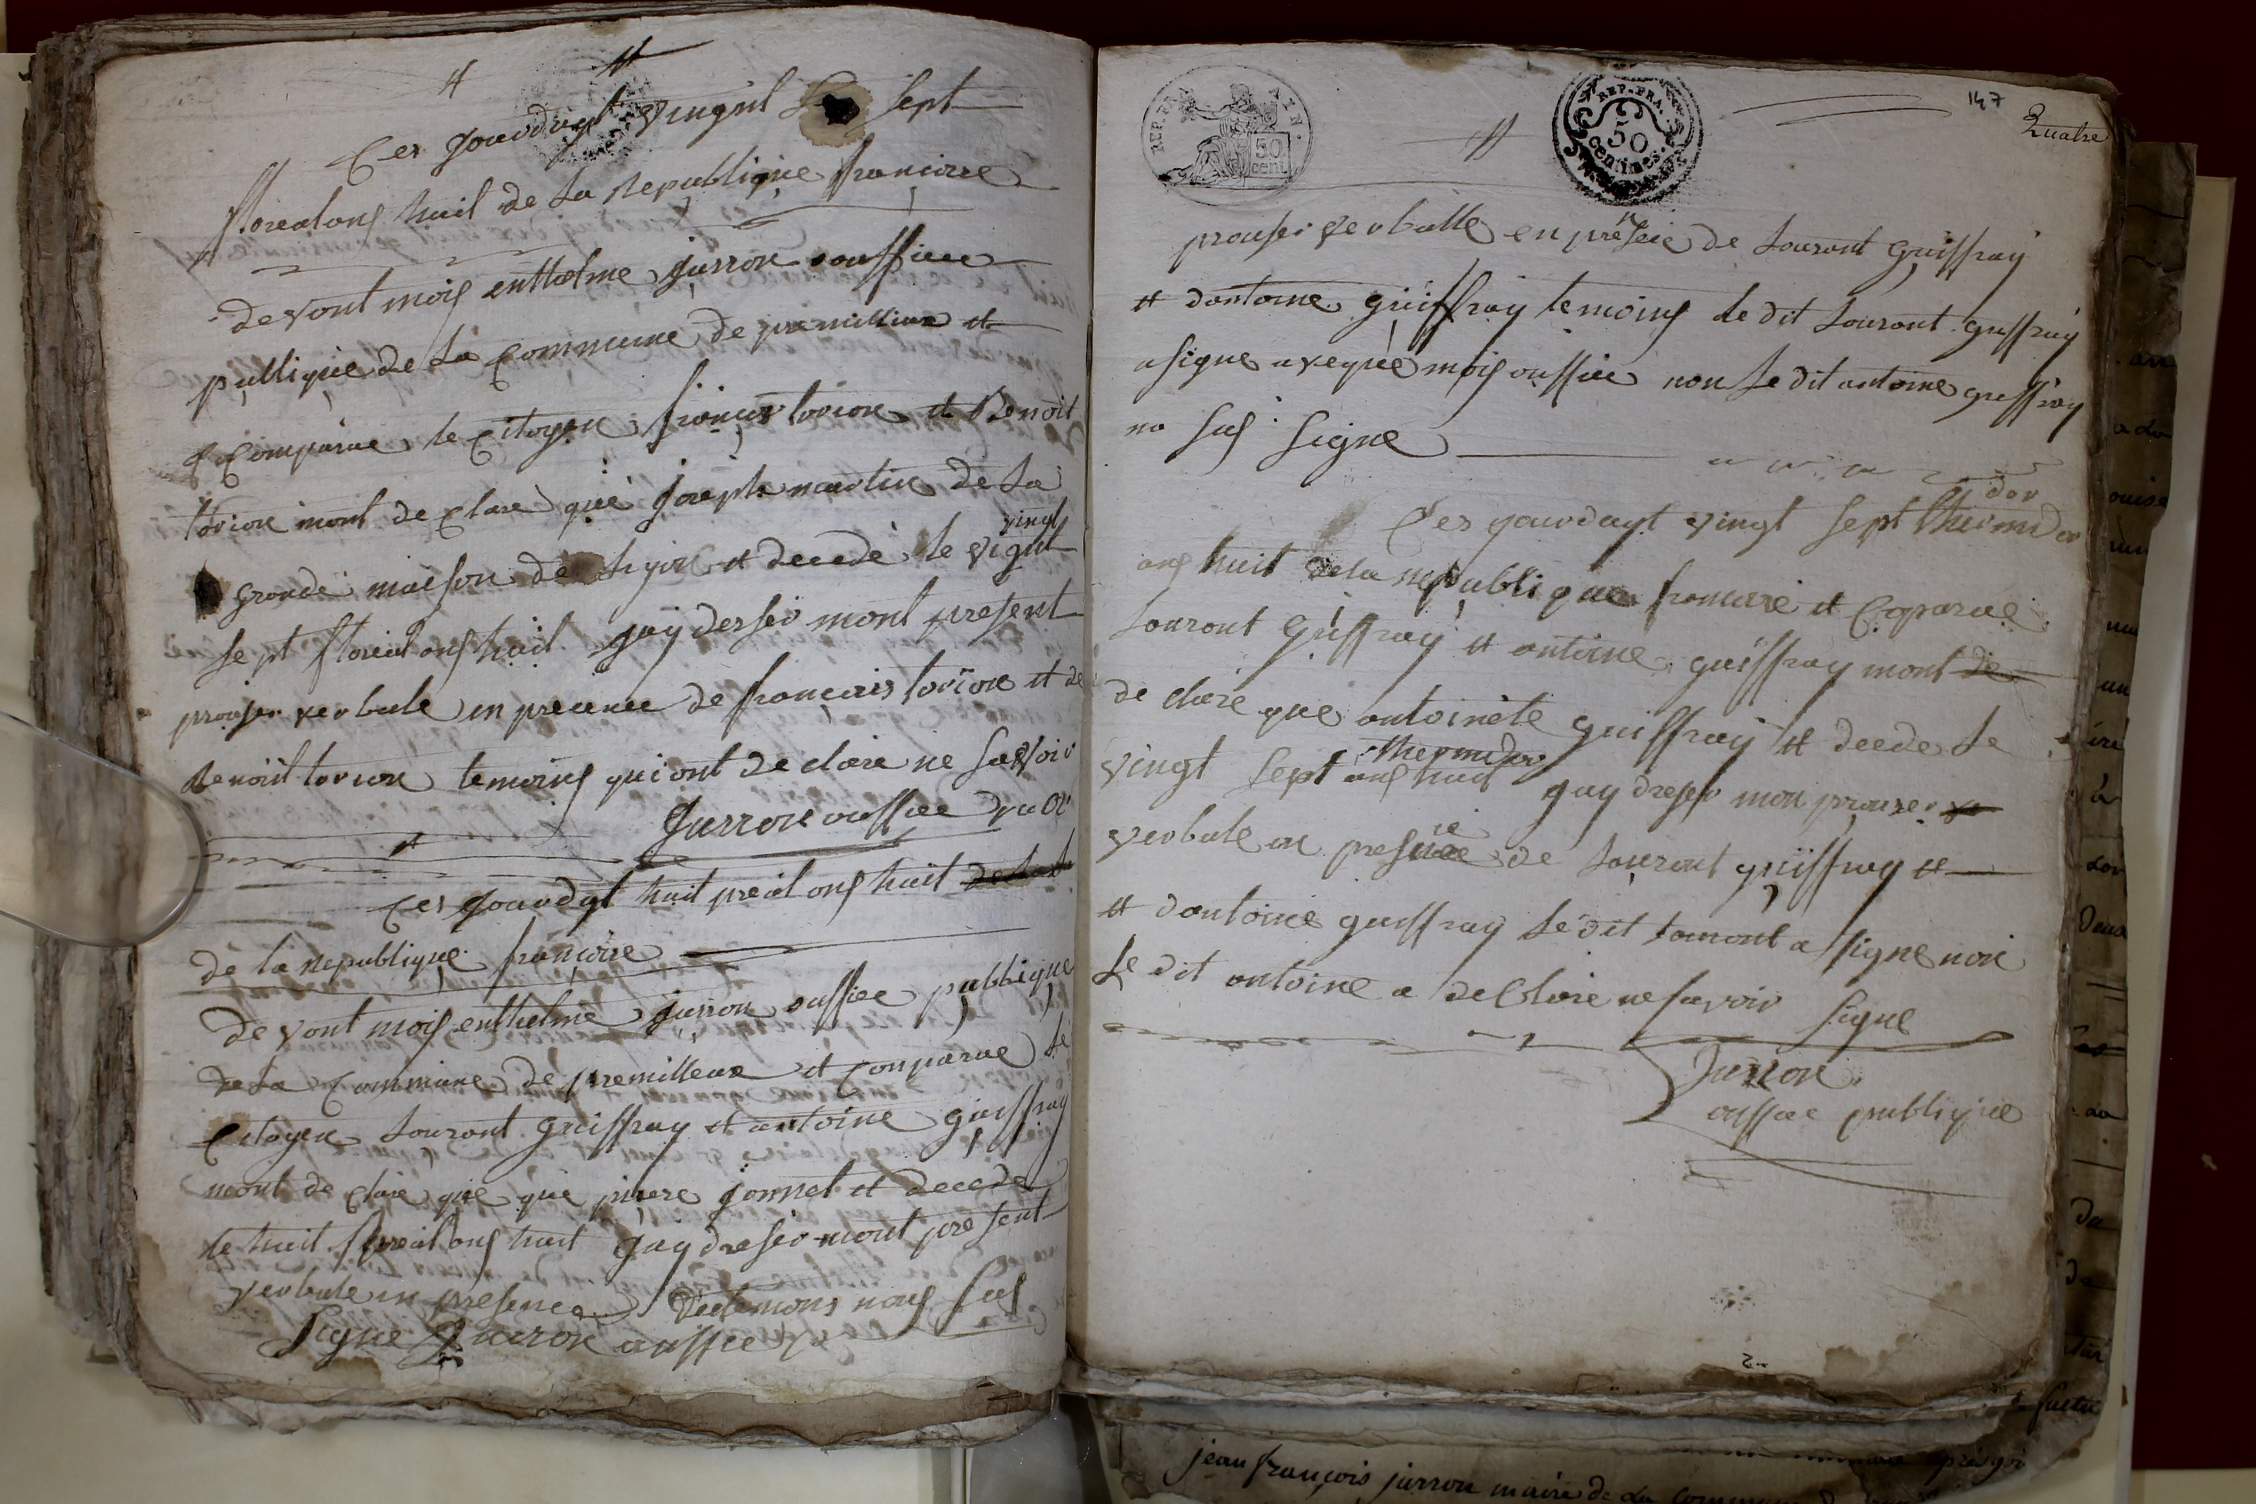 Ces jourduyt vingtt sept
florealons huit de la republiqúe francoise
devont mois enthelme jurron ouffiee
publiquie de la Commune de premillieux et
Comparue le Citoyen francois lovion et Benoit
lovion mont de clare que joseph martin de la
grande maison de lyon et decede le vight vingt
sept floreal ons huit jay desser mont present
prouser verbale en precence de francois lovion et de
Benoiit lovion temoins qui ont de clare ne sasvoir
Jurron ouffiee
Ces jourdyt huit preal ons huit
de la republique francoise
devont mois enthelme jurron ouffiee publique
de la Commune de premilleux et Comparue le
Citoyen Louront guiffray et antoine guiffray
mont de clare que que piere jonnet et decede
le huit preal ons huit jay dreser mont present
verbale en presence temons nous sus
signe Jurron ouffiee
REP. FRA.
50
cent.
REP. FRA.
50
centimes.
147
Quatre
prouser verballe en presece de Louront guiffray
et dantoine guiffray temoins le dit Louront guffray
a signe aveque mois ouffiee non le dit antoine greffray
na sus signe
Ces jourduyt vingt sept thermidor
dor
ons huit de la republique francoise et Coparue
Louront guiffray et antoine guiffray mont de
de clare que antoinete guiffray et decede le
thermidor
vingt sept ons huit jay dreser mon prouser
verbale en presence de Louront guiffray et
et dantoine guiffray le dit Louront a signe non
le dit antoine a declare ne savoir signe
Jurron
ouffiee publique
jean françois jurron maire de la commune